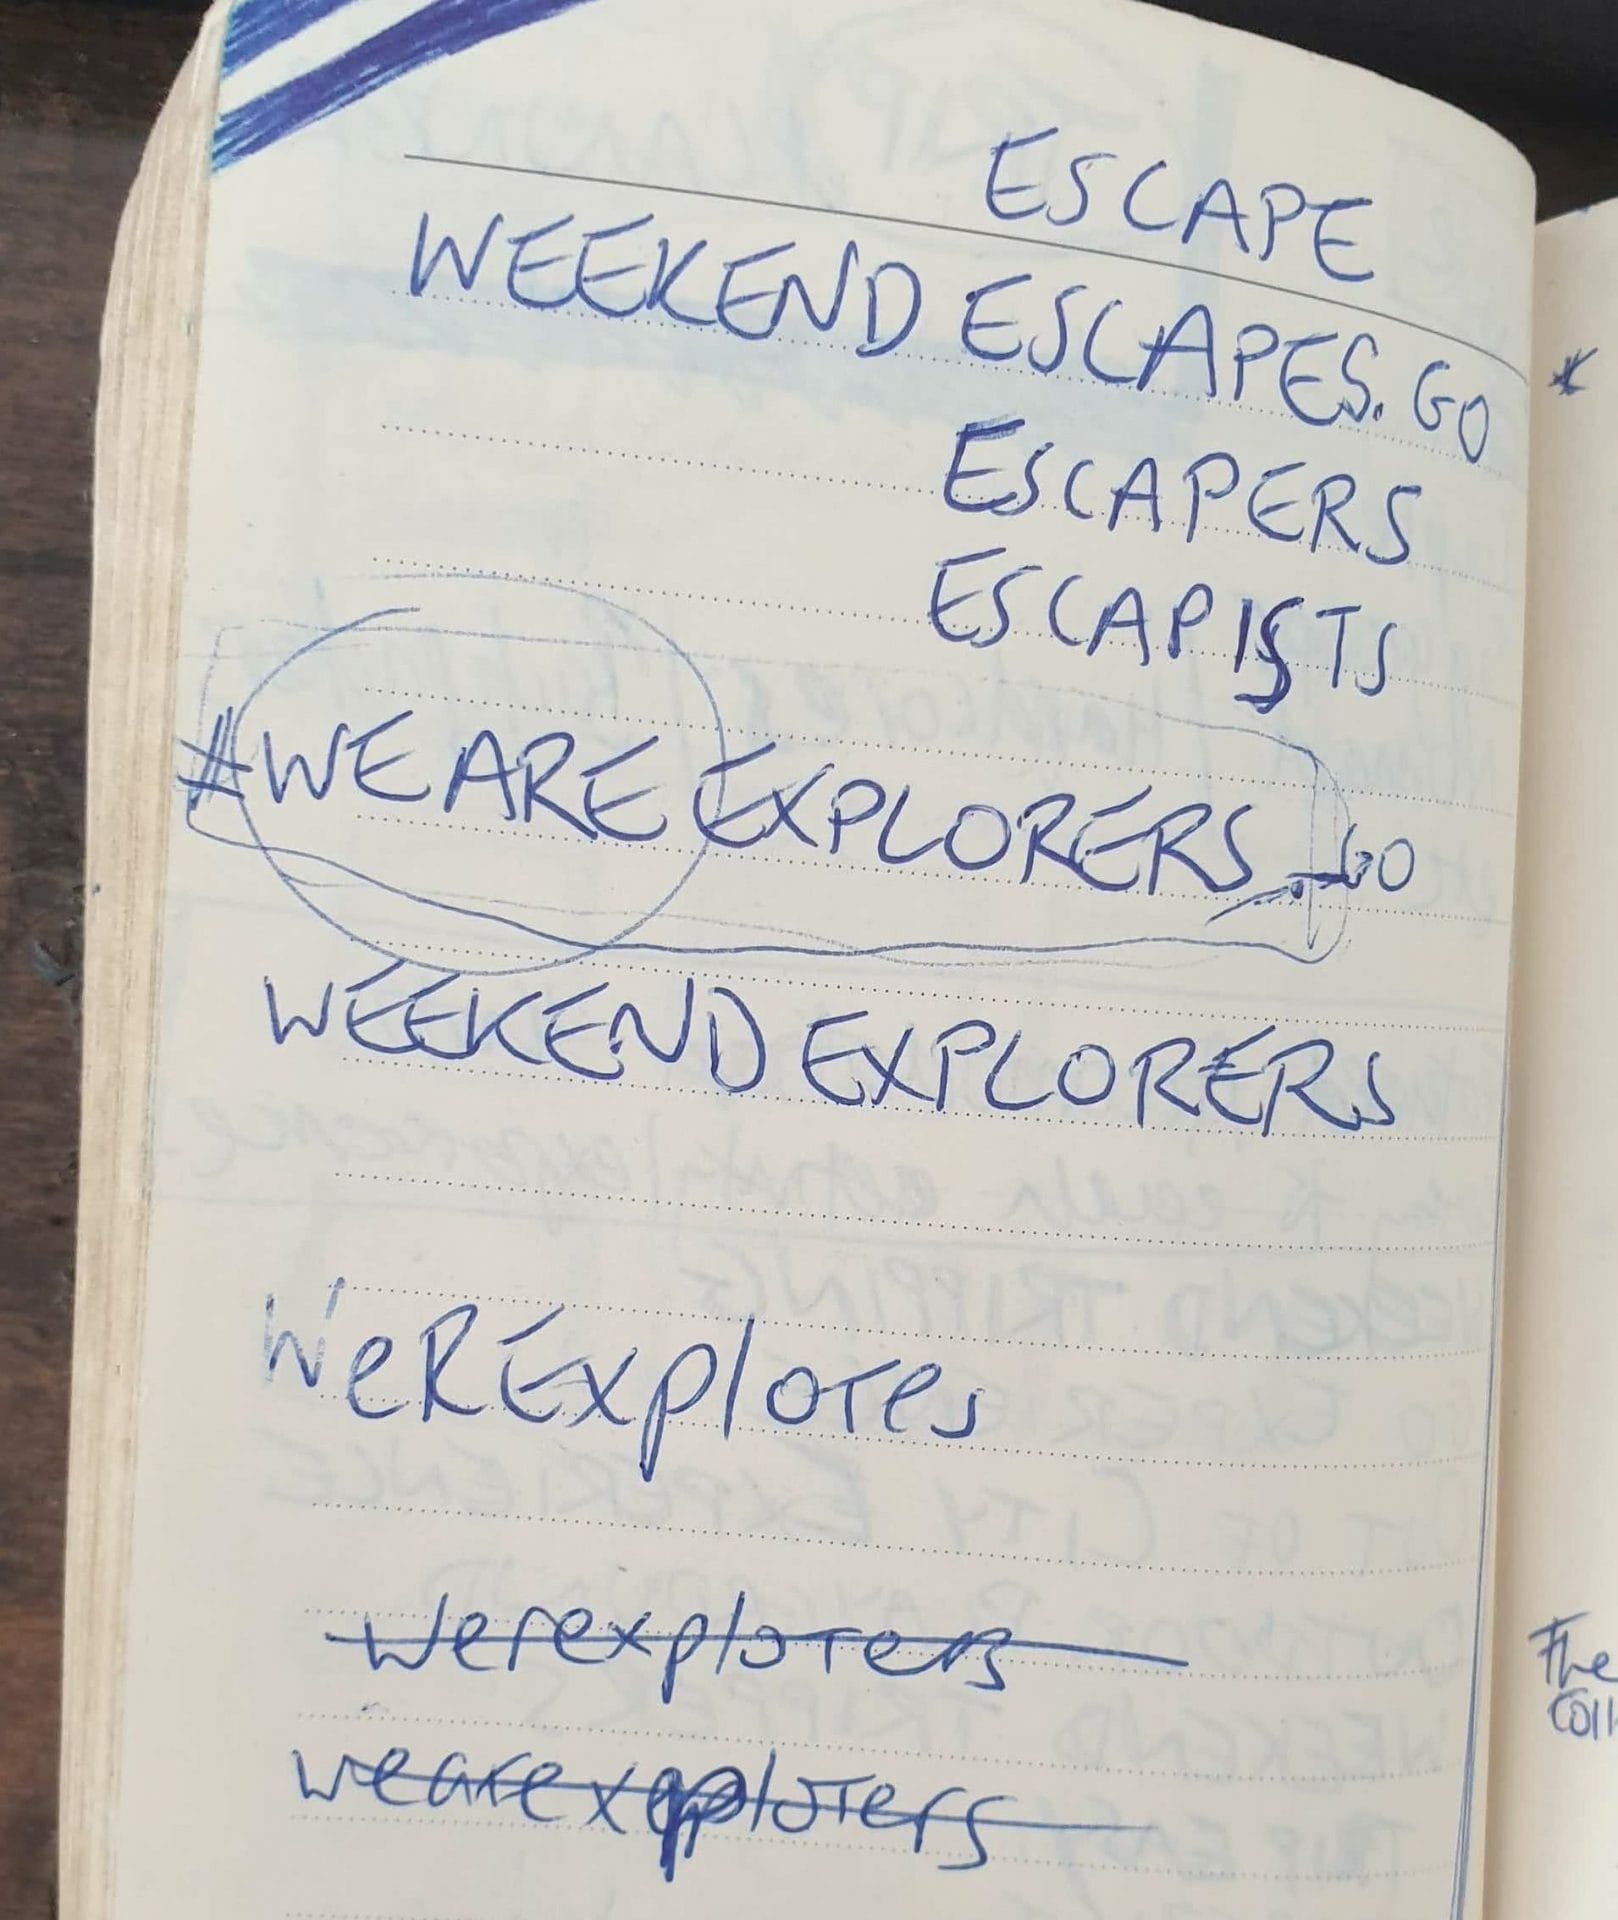 ESCAPE
WEEKEND ESCAPES.GO
ESCAPERS
ESCAPISTS
#WEARE EXPLORERS.GO
WEEKEND EXPLORERS
WeRExplores
werexplorers
wearexplorers
The